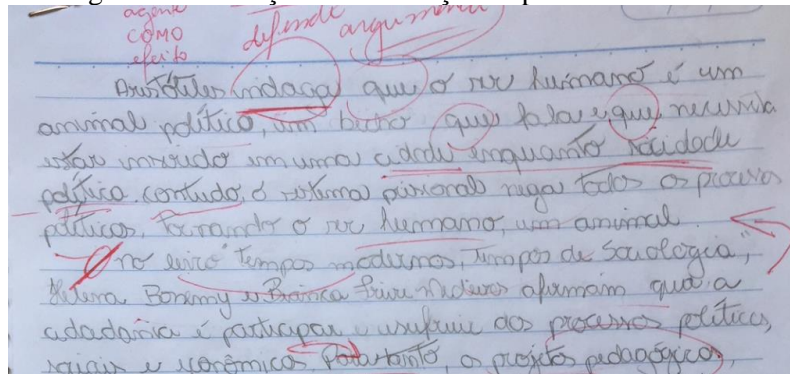 agente
como
efeito
defende argumenta
Aristóteles indaga que o ser humano é um
animal político, um bicho que fala e que necessita
estar inserido em uma cidade enquanto sociedade
política. contudo o sistema prisional nega todos os processos
políticos, tornando o ser humano, um animal.
no livro "tempos modernos, tempos de Sociologia",
Helena Bomemy e Bianca Freire Medeiros afirmam que a
cidadania é participar e usufruir dos processos políticos,
sociais e econômicos. Portanto, os projetos pedagógicos,